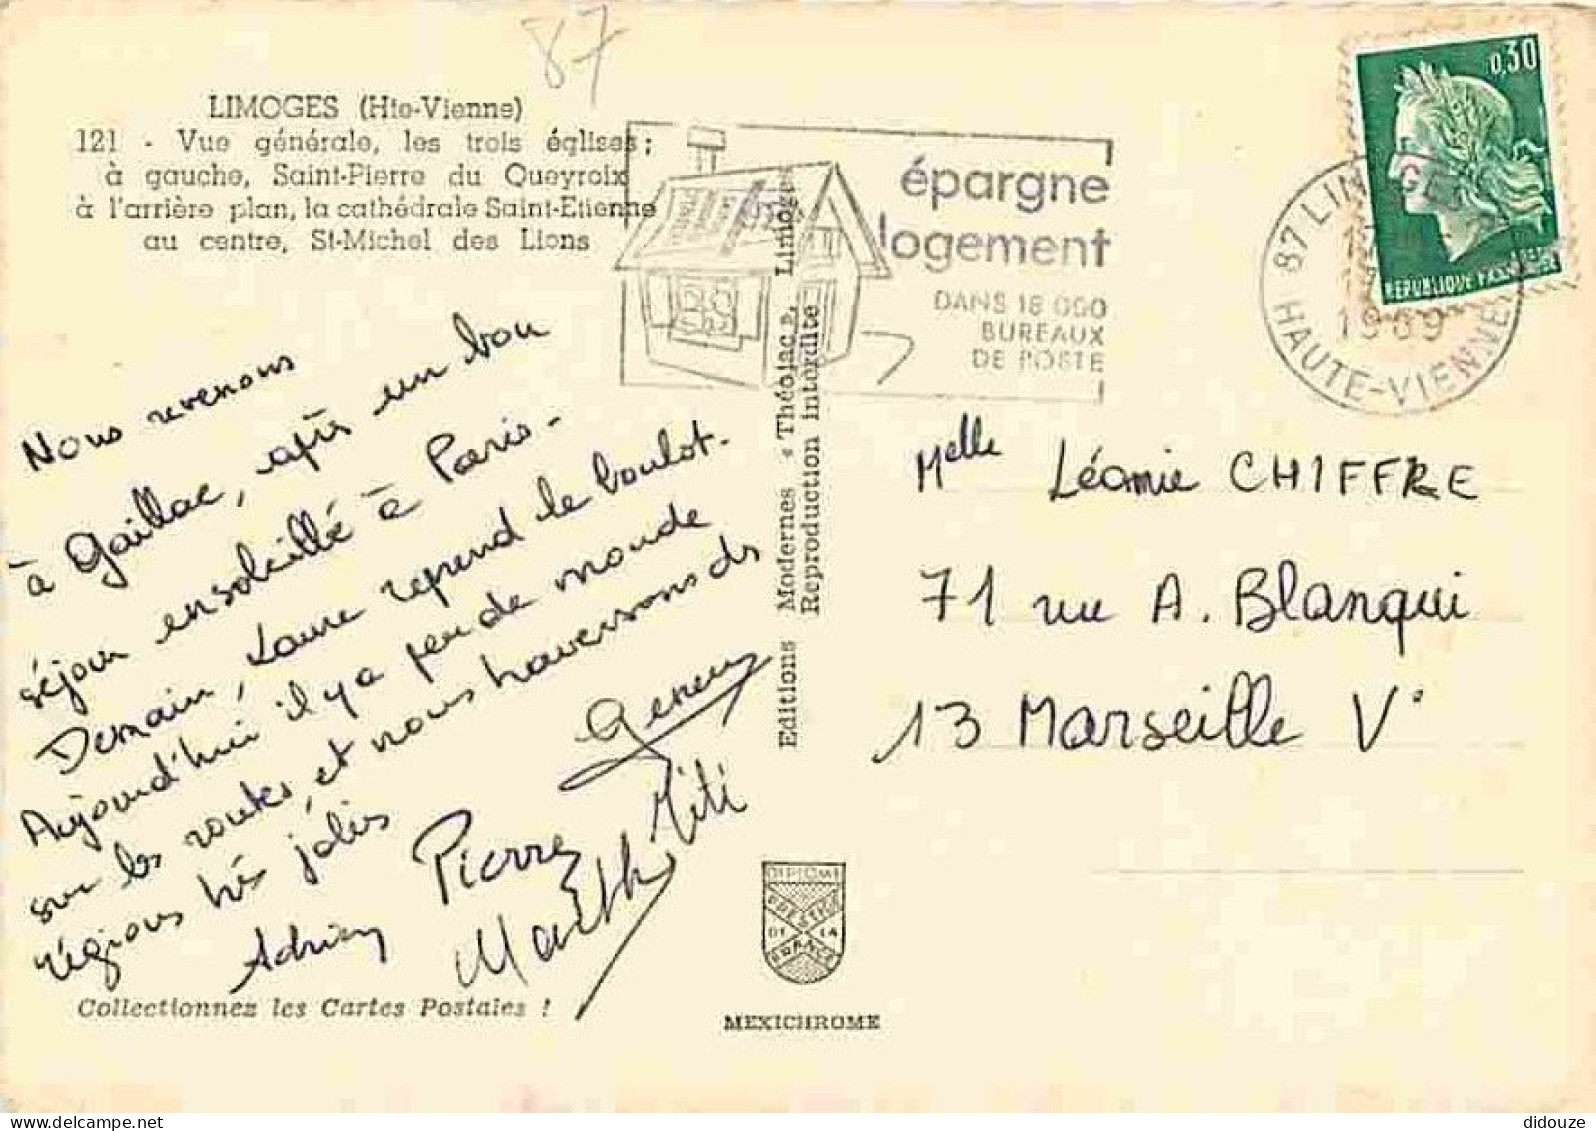 87
LIMOGES (Hte-Vienne)
121 - Vue générale, les trois églises ;
à gauche, Saint-Pierre du Queyroix
à l'arrière plan, la cathédrale Saint-Etienne
au centre, St-Michel des Lions
épargne
logement
DANS 18 000
BUREAUX
DE POSTE
0,30
REPUBLIQUE FRANÇAISE
87 LIMOGES
1969
HAUTE-VIENNE
Nous revenons
à Gaillac, après un bon
séjour ensoleillé à Paris.
Demain, Laure reprend le boulot.
Aujourd'hui il y a peu de monde
sur les routes, et nous traversons ds
régions très jolies
Adrien Pierre
Titi
Editions Modernes « Théojac », Limoges
Reproduction interdite
Melle Léonie CHIFFRE
71 rue A. Blanqui
13 Marseille V°
DIPLOME
PRESTIGE
DE LA
FRANCE
Collectionnez les Cartes Postales !
MEXICHROME
didouze